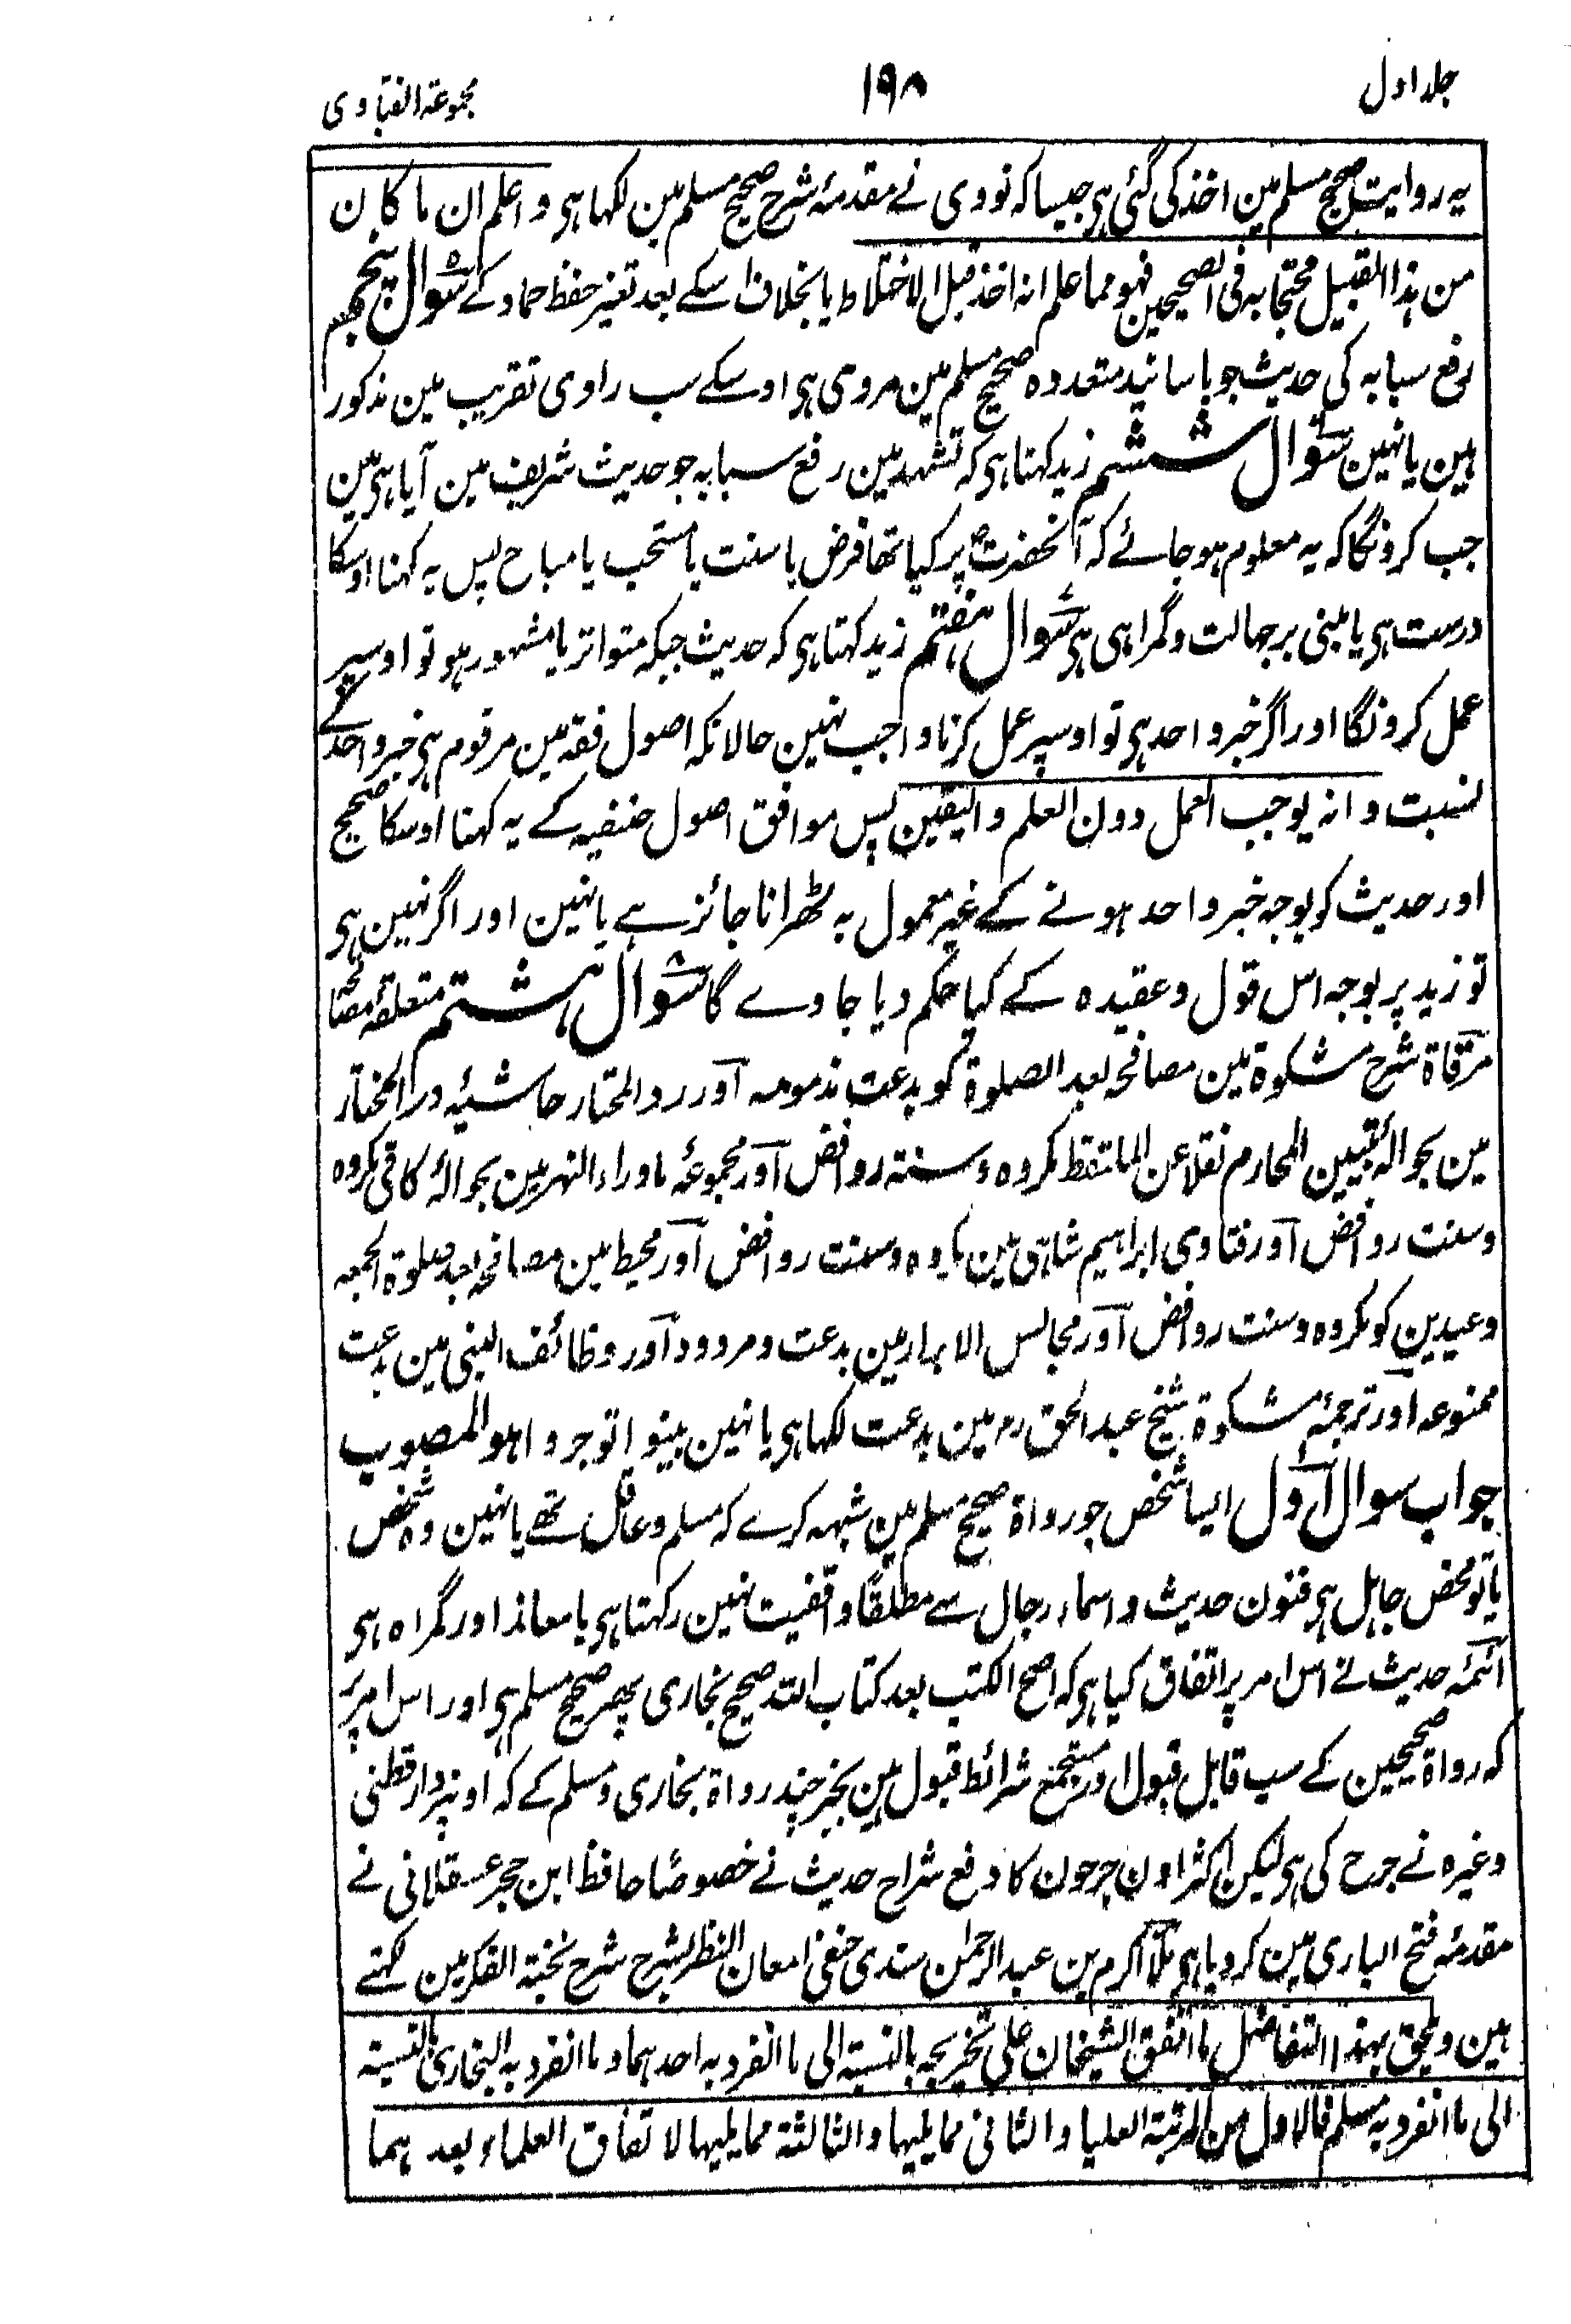 جلد اول
۱۹۸
مجموعۃ الفتاوی
یہ روایت صحیح مسلم مین اخذ کی گئی ہی جیسا کہ نووی نے مقدمۂ شرح صحیح مسلم مین لکہا ہی و اعلم ان ما کان
من ہذا القبیل محتجا بہ فی الصحیحین فہو مما علم انہ اخذ قبل الاختلاط یا بخلاف اسکے بعد تغیر حفظ حماد کے سوال پنجم
رفع سبابہ کی حدیث جو باسانید متعددہ صحیح مسلم مین مروی ہی اوسکے سب راوی تقریب مین مذکور
ہین یا نہین سوال ششم زید کہتا ہی کہ تشہد مین رفع سبابہ جو حدیث شریف مین آیا ہی مین
جب کرونگا کہ یہ معلوم ہو جائے کہ آنحضرتؐ پر کیا تھا فرض یا سنت یا مستحب یا مباح پس یہ کہنا اوسکا
درست ہی یا مبنی بر جہالت و گمراہی ہی سوال ہفتم زید کہتا ہی کہ حدیث جبکہ متواتر یا مشہور ہو تو اوسپر
عمل کرونگا اور اگر خبر واحد ہی تو اوسپر عمل کرنا واجب نہین حالانکہ اصول فقہ مین مرقوم ہی خبر واحد کے
نسبت و انہ یوجب العمل دون العلم و الیقین پس موافق اصول حنفیہ کے یہ کہنا اوسکا صحیح
اور حدیث کو بوجہ خبر واحد ہونے کے غیر معمول بہ ٹھرانا جائز ہے یا نہین اور اگر نہین ہی
تو زید پر بوجہ اس قول و عقیدہ کے کیا حکم دیا جاوے گا سوال ہشتم متعلقۂ مصافحہ
مرقاۃ شرح مشکوۃ مین مصافحہ بعد الصلوۃ کو بدعت مذمومہ آور رد المحتار حاشیۂ در المختار
مین بحوالۂ تبیین المحارم نقلا عن الملتقط مکروہ و سنتہ روافض آور مجموعۂ ماوراء النہر مین بحوالۂ کافی مکروہ
و سنت روافض آور فتاوی ابراہیم شاہی مین مکروہ و سنت روافض آور محیط مین مصافحہ بعد صلوۃ الجمعہ
و عیدین کو مکروہ و سنت روافض آور مجالس الابرار مین بدعت و مردود آور وظائف النبی مین بدعت
ممنوعہ آور ترجمۂ مشکوۃ شیخ عبد الحق رہ مین بدعت لکہا ہی یا نہین بینوا توجروا ہو المصوب
جواب سوال اول ایسا شخص جو رواۃ صحیح مسلم مین شبہہ کرے کہ مسلم و عاقل تھے یا نہین وہ شخص
یا تو محض جاہل ہی فنون حدیث و اسماء رجال سے مطلقًا واقفیت نہین رکہتا ہی یا معاند اور گمراہ ہی
ائمۂ حدیث نے اس امر پر اتفاق کیا ہی کہ اصح الکتب بعد کتاب اللہ صحیح بخاری پھر صحیح مسلم ہی اور اس امر پر
کہ رواۃ صحیحین کے سب قابل قبول اور مستجمع شرائط قبول ہین بجز چند رواۃ بخاری و مسلم کے کہ اونپر دار قطنی
وغیرہ نے جرح کی ہی لیکن اکثر اون جرحون کا دفع شراح حدیث نے خصوصًا حافظ ابن حجر عسقلانی نے
مقدمہ فتح الباری مین کر دیا ہی ملا اکرم بن عبد الرحمن سندی حنفی امعان النظر بشرح شرح نخبۃ الفکر مین لکہتے
ہین و یلحق بہذا التفاضل ما اتفق الشیخان علی تخریجہ بالنسبۃ الی ما انفرد بہ احدہما و ما انفرد بہ البخاری بالنسبۃ
الی ما انفرد بہ مسلم فالاول من المرتبۃ العلیا و الثانی مما یلیہا و الثالثۃ مما یلیہا لاتفاق العلماء بعد ہما